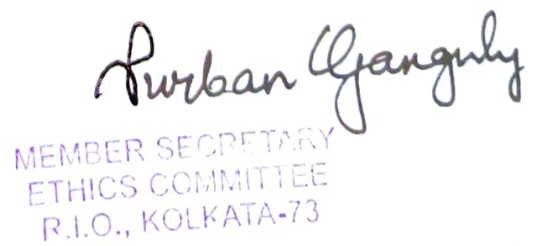 Purban Ganguly
MEMBER SECRETARY
ETHICS COMMITTEE
R.I.O., KOLKATA-73